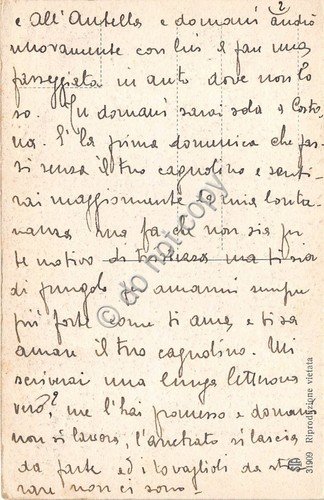 e All'Antella e domani andrò
nuovamente con lui a fare una
passeggiata in auto dove non lo
so. Tu domani sarai sola a Costo
na. È la prima domenica che pas
si senza il tuo cagnolino e senti
rai maggiormente la mia lonta
nanza ma fa che non sia per
te motivo di tristezza ma ti sia
di pungolo ad amarmi sempre
più forte come ti ama e ti sa
amare il tuo cagnolino. Mi
scriverai una lunga letterona
vero? me l'hai promesso e domani
non si lavora, l'anchrato si lascia
da parte ed i tovaglioli da sti
rare non ci sono!
31909 Riproduzione vietata
do not copy